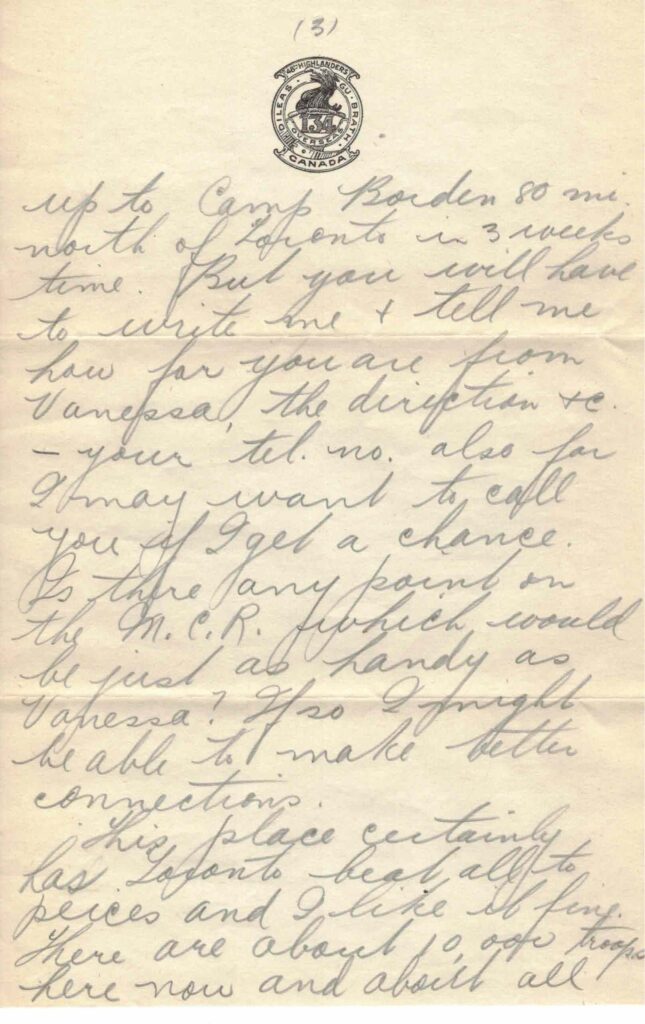 (3)
48TH HIGHLANDERS
DILEAS GU BRATH
134
OVERSEAS
CANADA
up to Camp Borden 80 mi.
north of Toronto in 3 weeks
time. But you will have
to write me & tell me
how far you are from
Vanessa, the direction &c.
– your tel. no. also for
I may want to call
you if I get a chance.
Is there any point on
the M.C.R. which would
be just as handy as
Vanessa? If so I might
be able to make better
connections.
This place certainly
has Toronto beat all to
peices and I like it fine.
There are about 10,000 troops
here now and about all